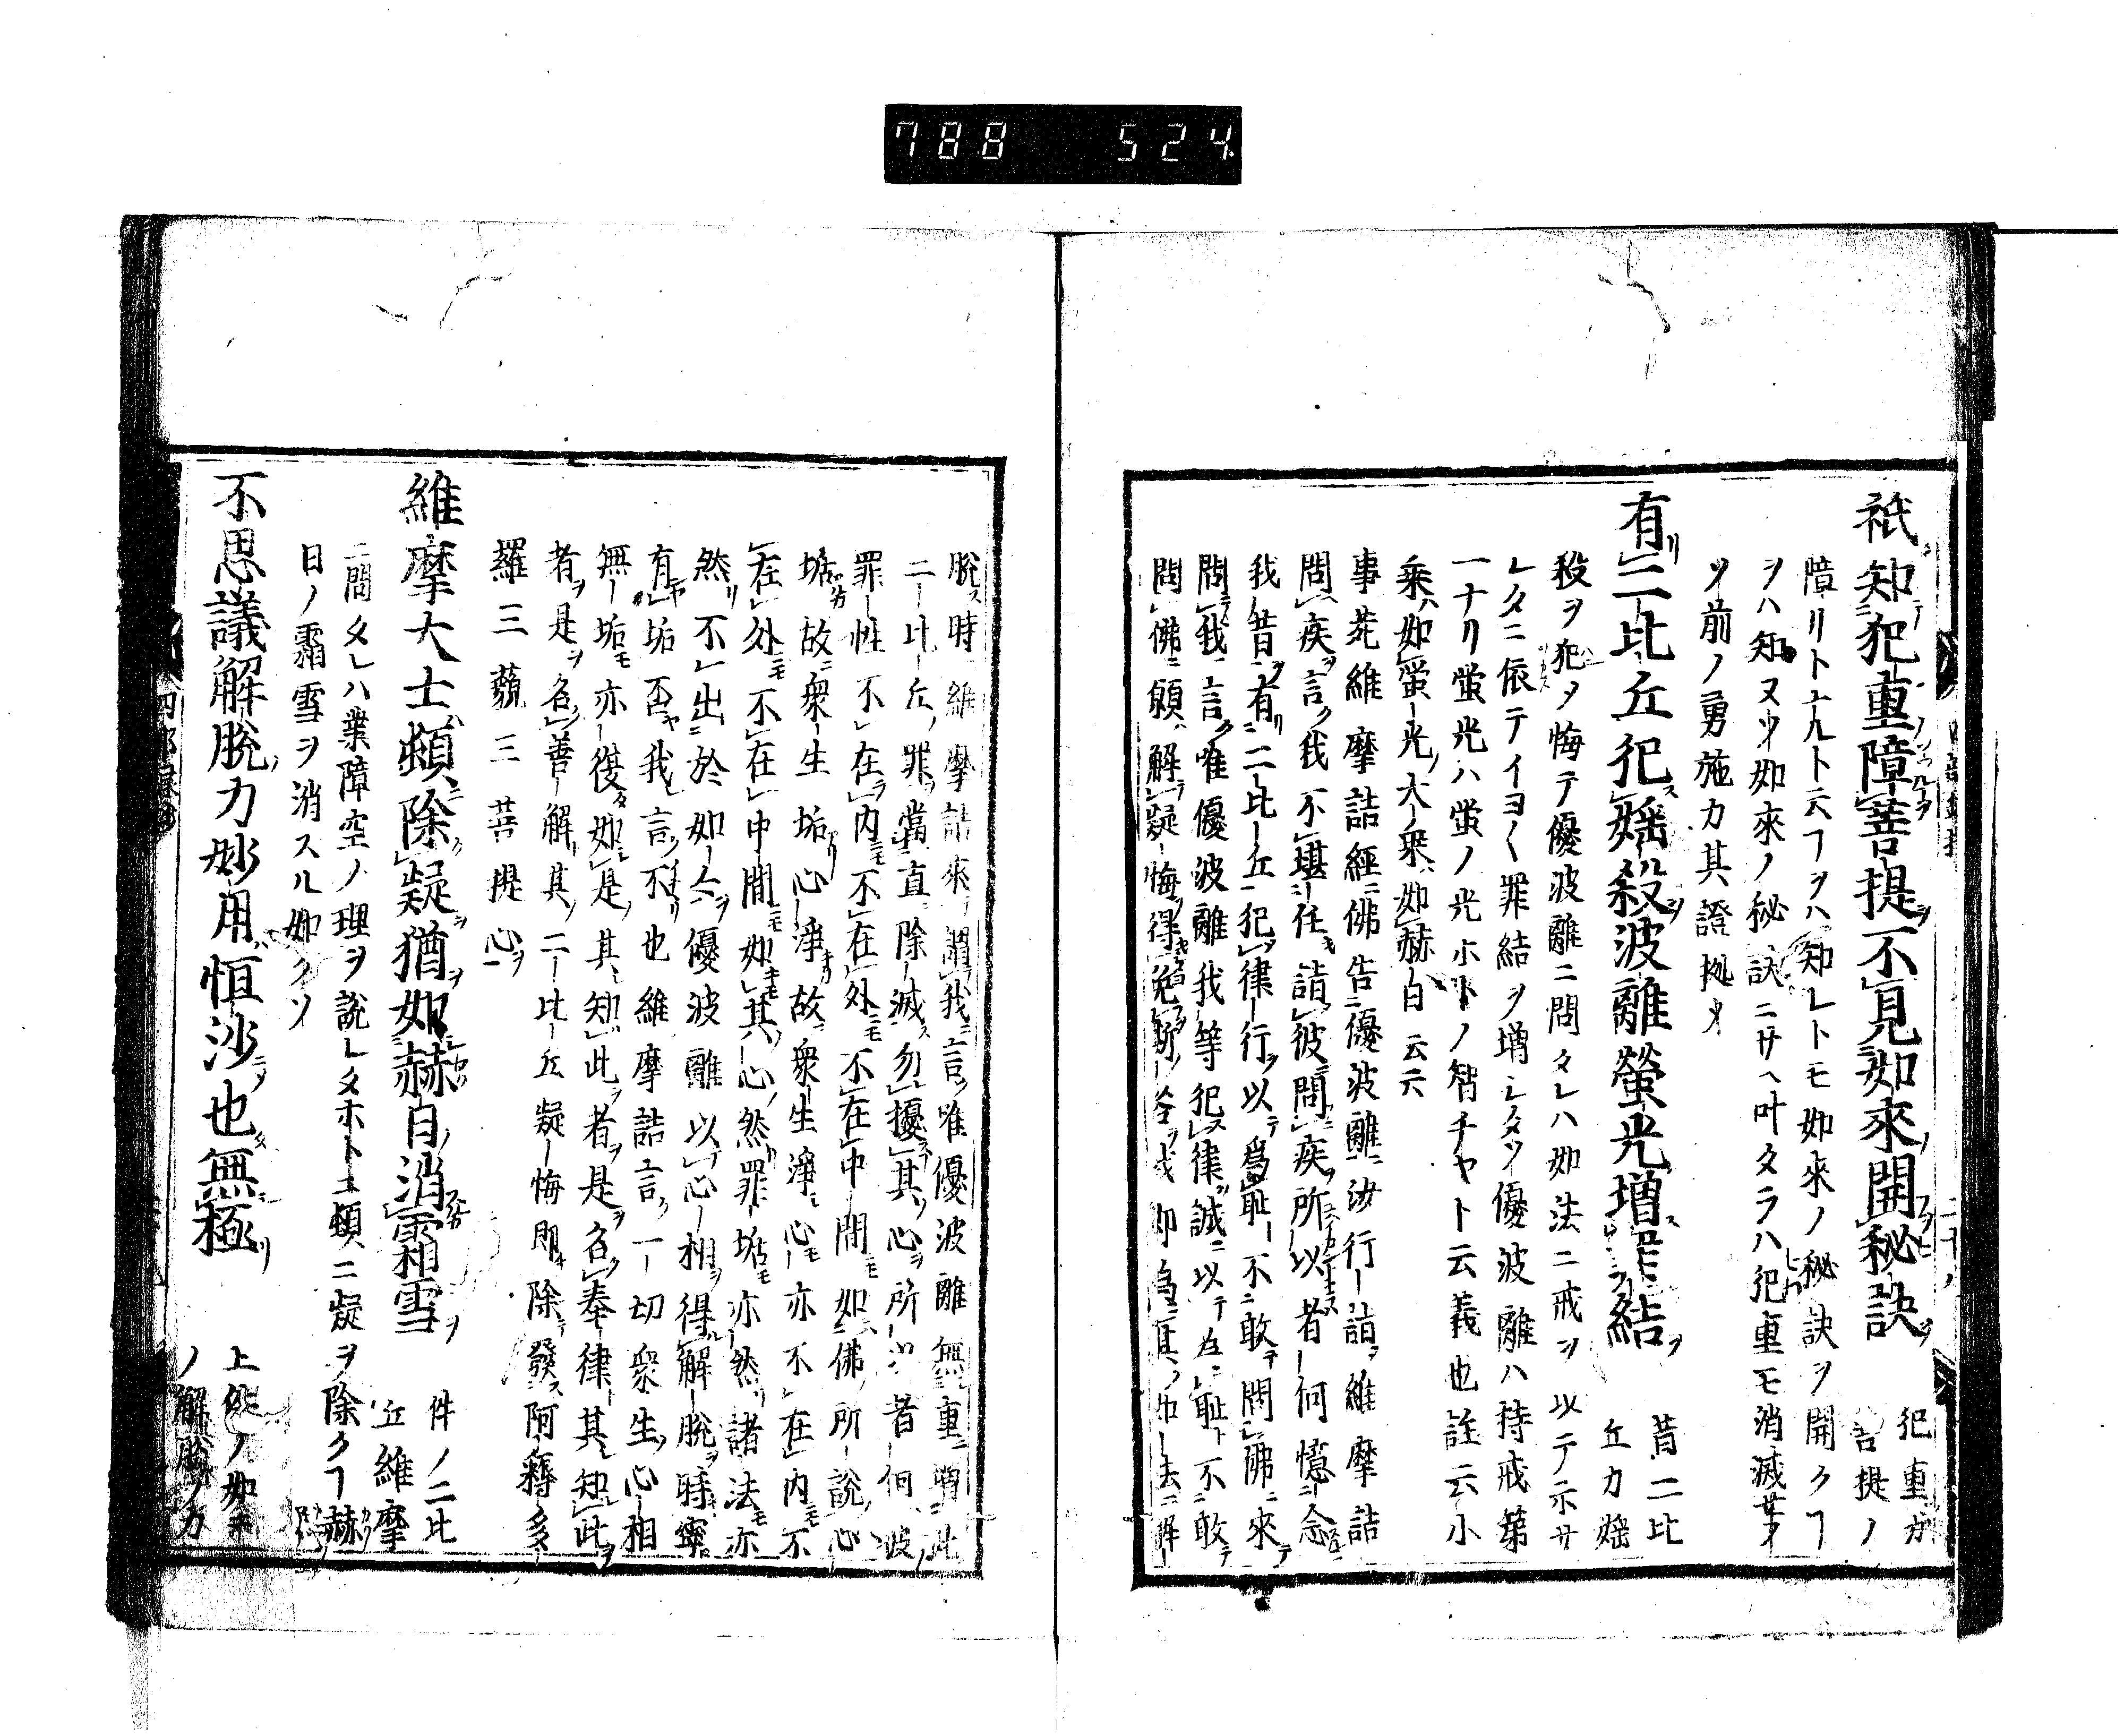 788 524
祇知犯重障菩提不見如來開秘訣
犯重ガ
菩提ノ
障リト十九ト云フヲハ知レトモ如來ノ秘訣ヲ開クフ
ヲハ知ヌソ如來ノ秘訣ニサヘ叶タラハ犯重モ消滅せ
ソ前ノ勇施カ其證拠ソ
有二比丘犯婬殺波離螢光增罪結
昔二比
丘カ婬
殺ヲ犯シタ悔テ優波離ニ問タレハ如法ニ戒ヲ以テ示サ
レタニ依テイヨ〱罪結ヲ増レタソ優波離ハ持戒第
一ナリ螢光ハ螢ノ光ホトノ智チヤト云義也註云小
乘如螢光大乘如赫日云云
事苑維摩詰經ニ佛告優波離汝行詣維摩詰
問疾言我不堪任詣彼問疾所以者何憶念
我昔有二比丘犯律行以爲耻不敢問佛來
問我言唯優波離我等犯律誠以爲耻不敢
問佛願解疑悔得免斯咎我即爲其如法解
脱時維摩詰來謂我言唯優波離無重增此
二比丘罪當直除滅勿擾其心所以者何彼
罪性不在内不在外不在中間如佛所説心
垢故衆生垢心淨故衆生淨心亦不在内不
在外不在中間如其心然罪垢亦然諸法亦
然不出於如如優波離以心相得解脱時寧
有垢否我言不也維摩詰言一切衆生心相
無垢亦復如是其知此者是名奉律其知此
者是名善解其二比丘疑悔即除發阿耨多
羅三藐三菩提心
維摩大士頓除疑猶如赫日消霜雪
件ノ二比
丘維摩
ニ問タレハ業障空ノ理ヲ説レタホトニ頓ニ疑ヲ除クフ赫
日ノ霜雪ヲ消スル如クソ
不思議解脱力妙用恒沙也無極
上ノ如キ
ノ解脱ノ力